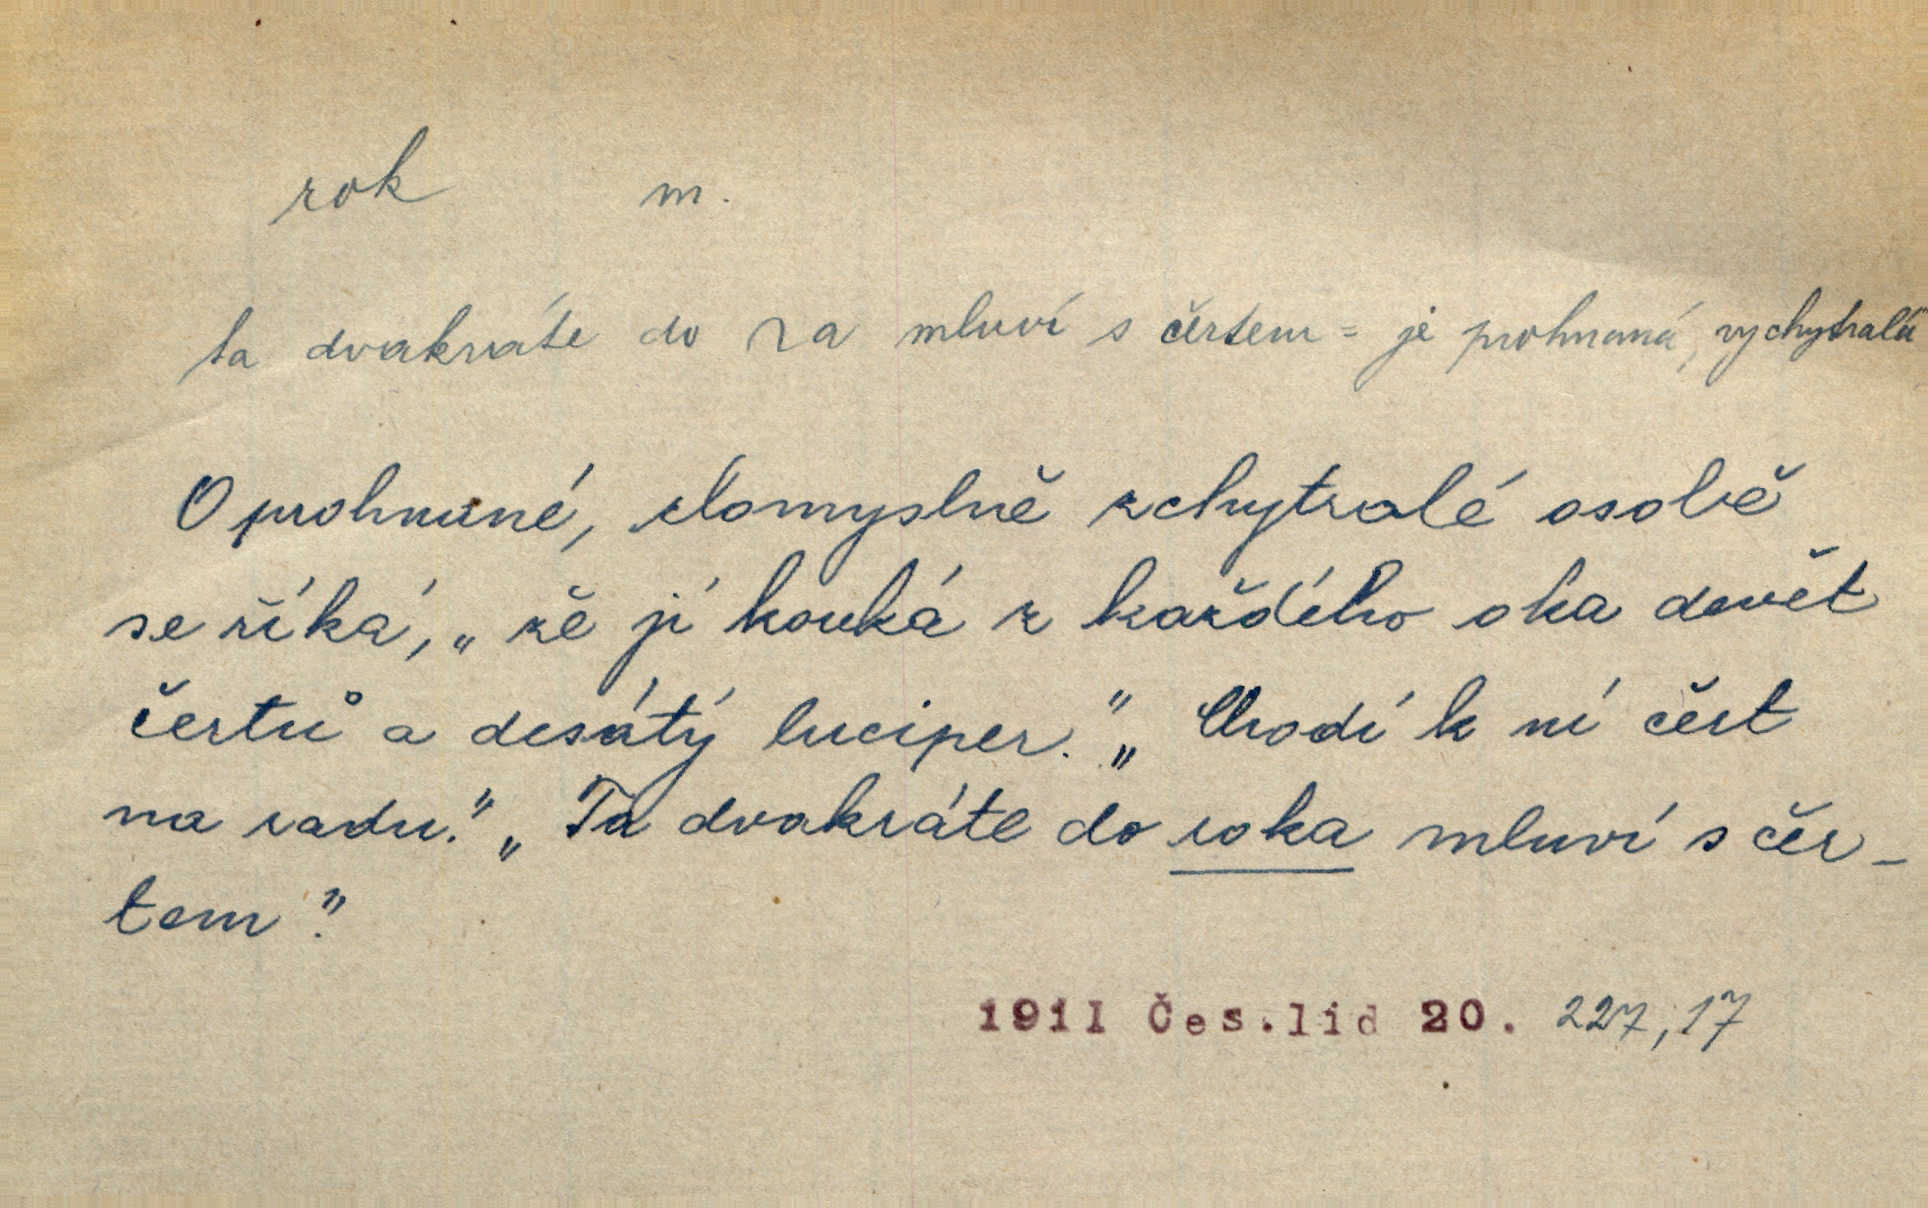 rok m.
ta dvakráte do ra mluví s čertem = je prohnaná, vychytralá
O prohnané, zlomyslně zchytralé osobě
se říká, „že jí kouká z každého oka devět
čertů a desátý luciper." „Chodí k ní čert
na radu." „Ta dvakráte do roka mluví s čer-
tem".
1911 Čes.lid 20. 227,17